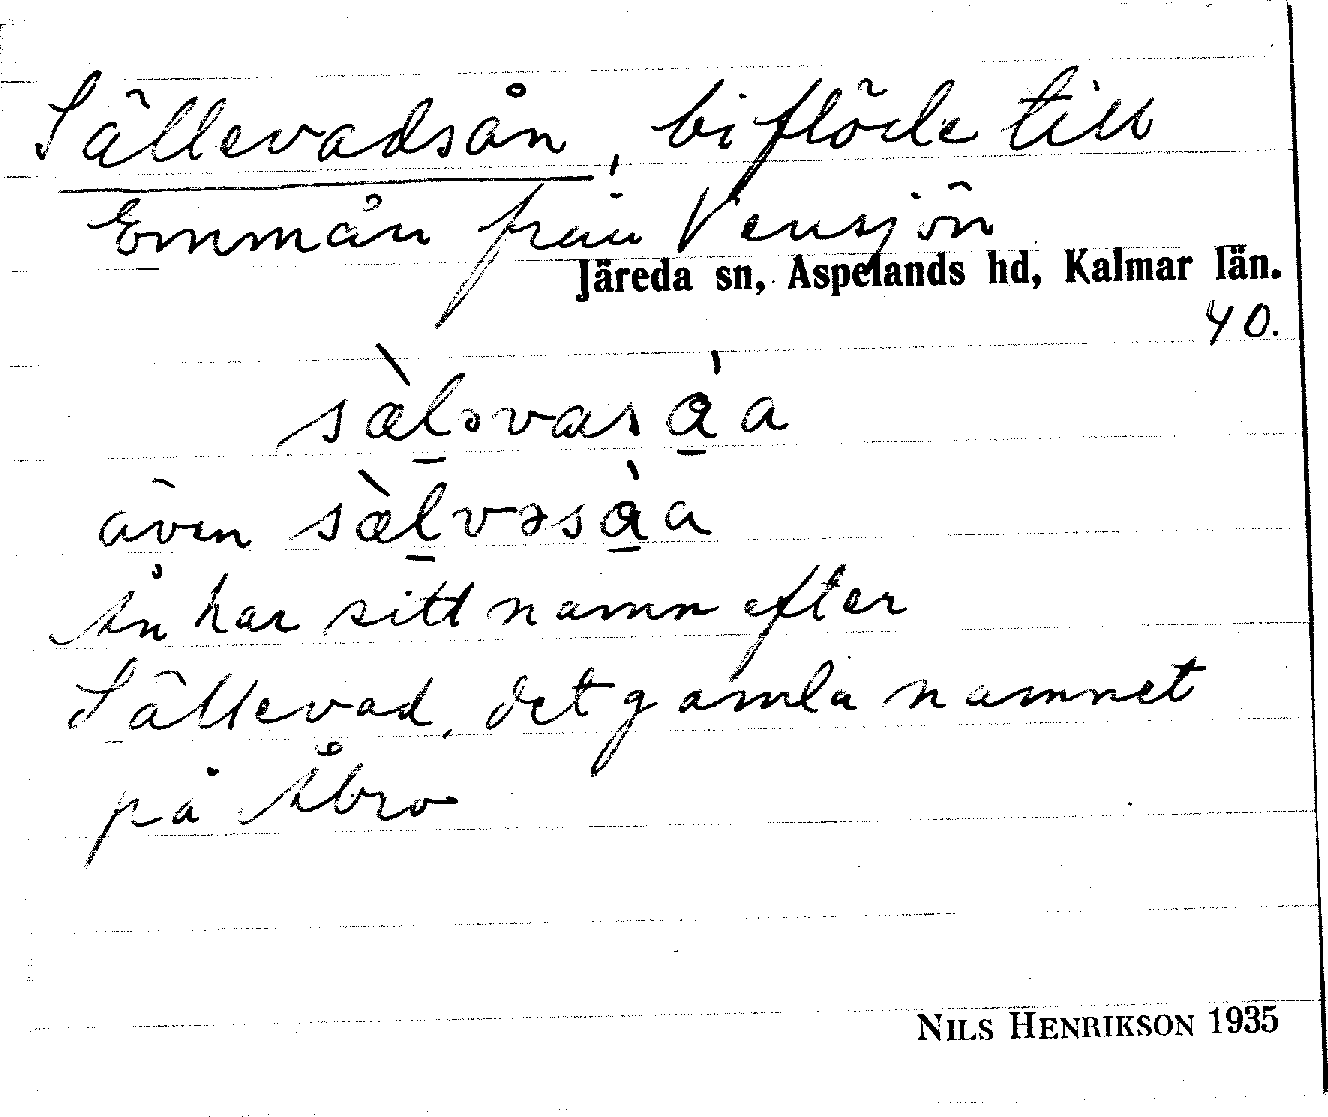 Sällevadsån, biflöde till
Emmån från Vensjön
Järeda sn, Aspelands hd, Kalmar län.
40.
sæ̀l̲əvasà̲a
även sæ̀l̲vəsà̲a
Ån har sitt namn efter
Sällevad, det gamla namnet
på Åbro
NILS HENRIKSON 1935